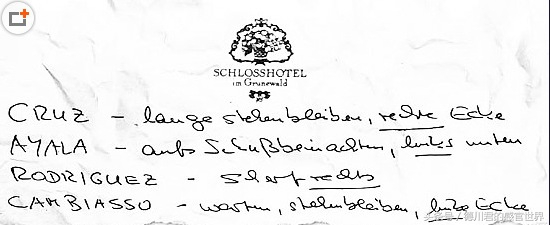 SCHLOSSHOTEL
im Grunewald
CRUZ – lange stehenbleiben, rechte Ecke
AYALA – aufs Schußbein achten, links unten
RODRIGUEZ – scharf rechts
CAMBIASSO – warten, stehenbleiben, linke Ecke
头条号 / 德川君的感官世界